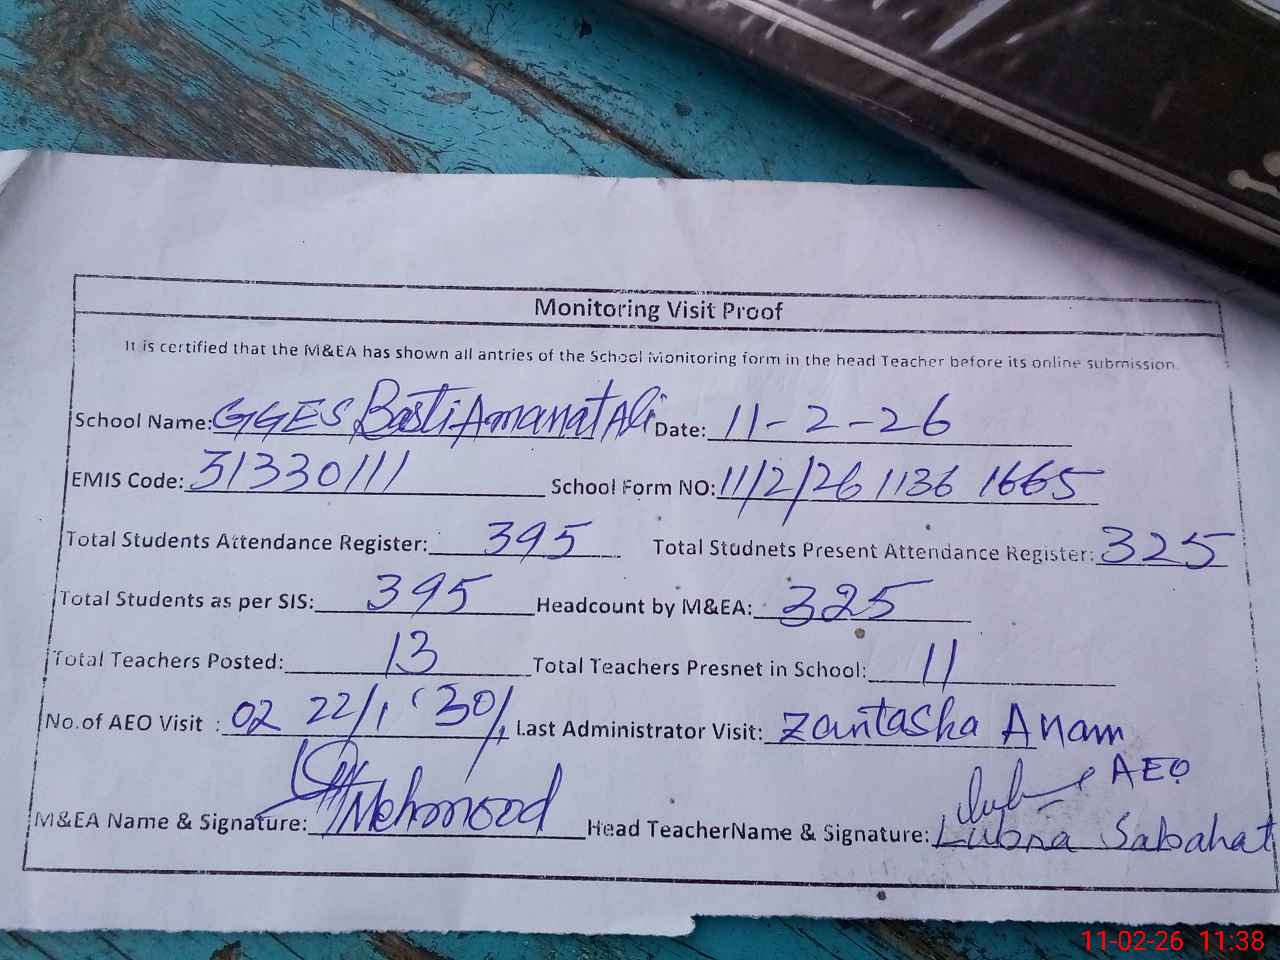 Monitoring Visit Proof
It is certified that the M&EA has shown all antries of the School Monitoring form in the head Teacher before its online submission.
School Name: GGES Basti Amanat Ali Date: 11-2-26
EMIS Code: 31330111 School Form NO: 11/2/26 1136 1665
Total Students Attendance Register: 395 Total Studnets Present Attendance Register: 325
Total Students as per SIS: 395 Headcount by M&EA: 325
Total Teachers Posted: 13 Total Teachers Presnet in School: 11
No.of AEO Visit : 02 22/1 30/1 Last Administrator Visit: Zantasha Anam
AEO
M&EA Name & Signature: Mehmood Head TeacherName & Signature: Lubna Sabahat
11-02-26 11:38